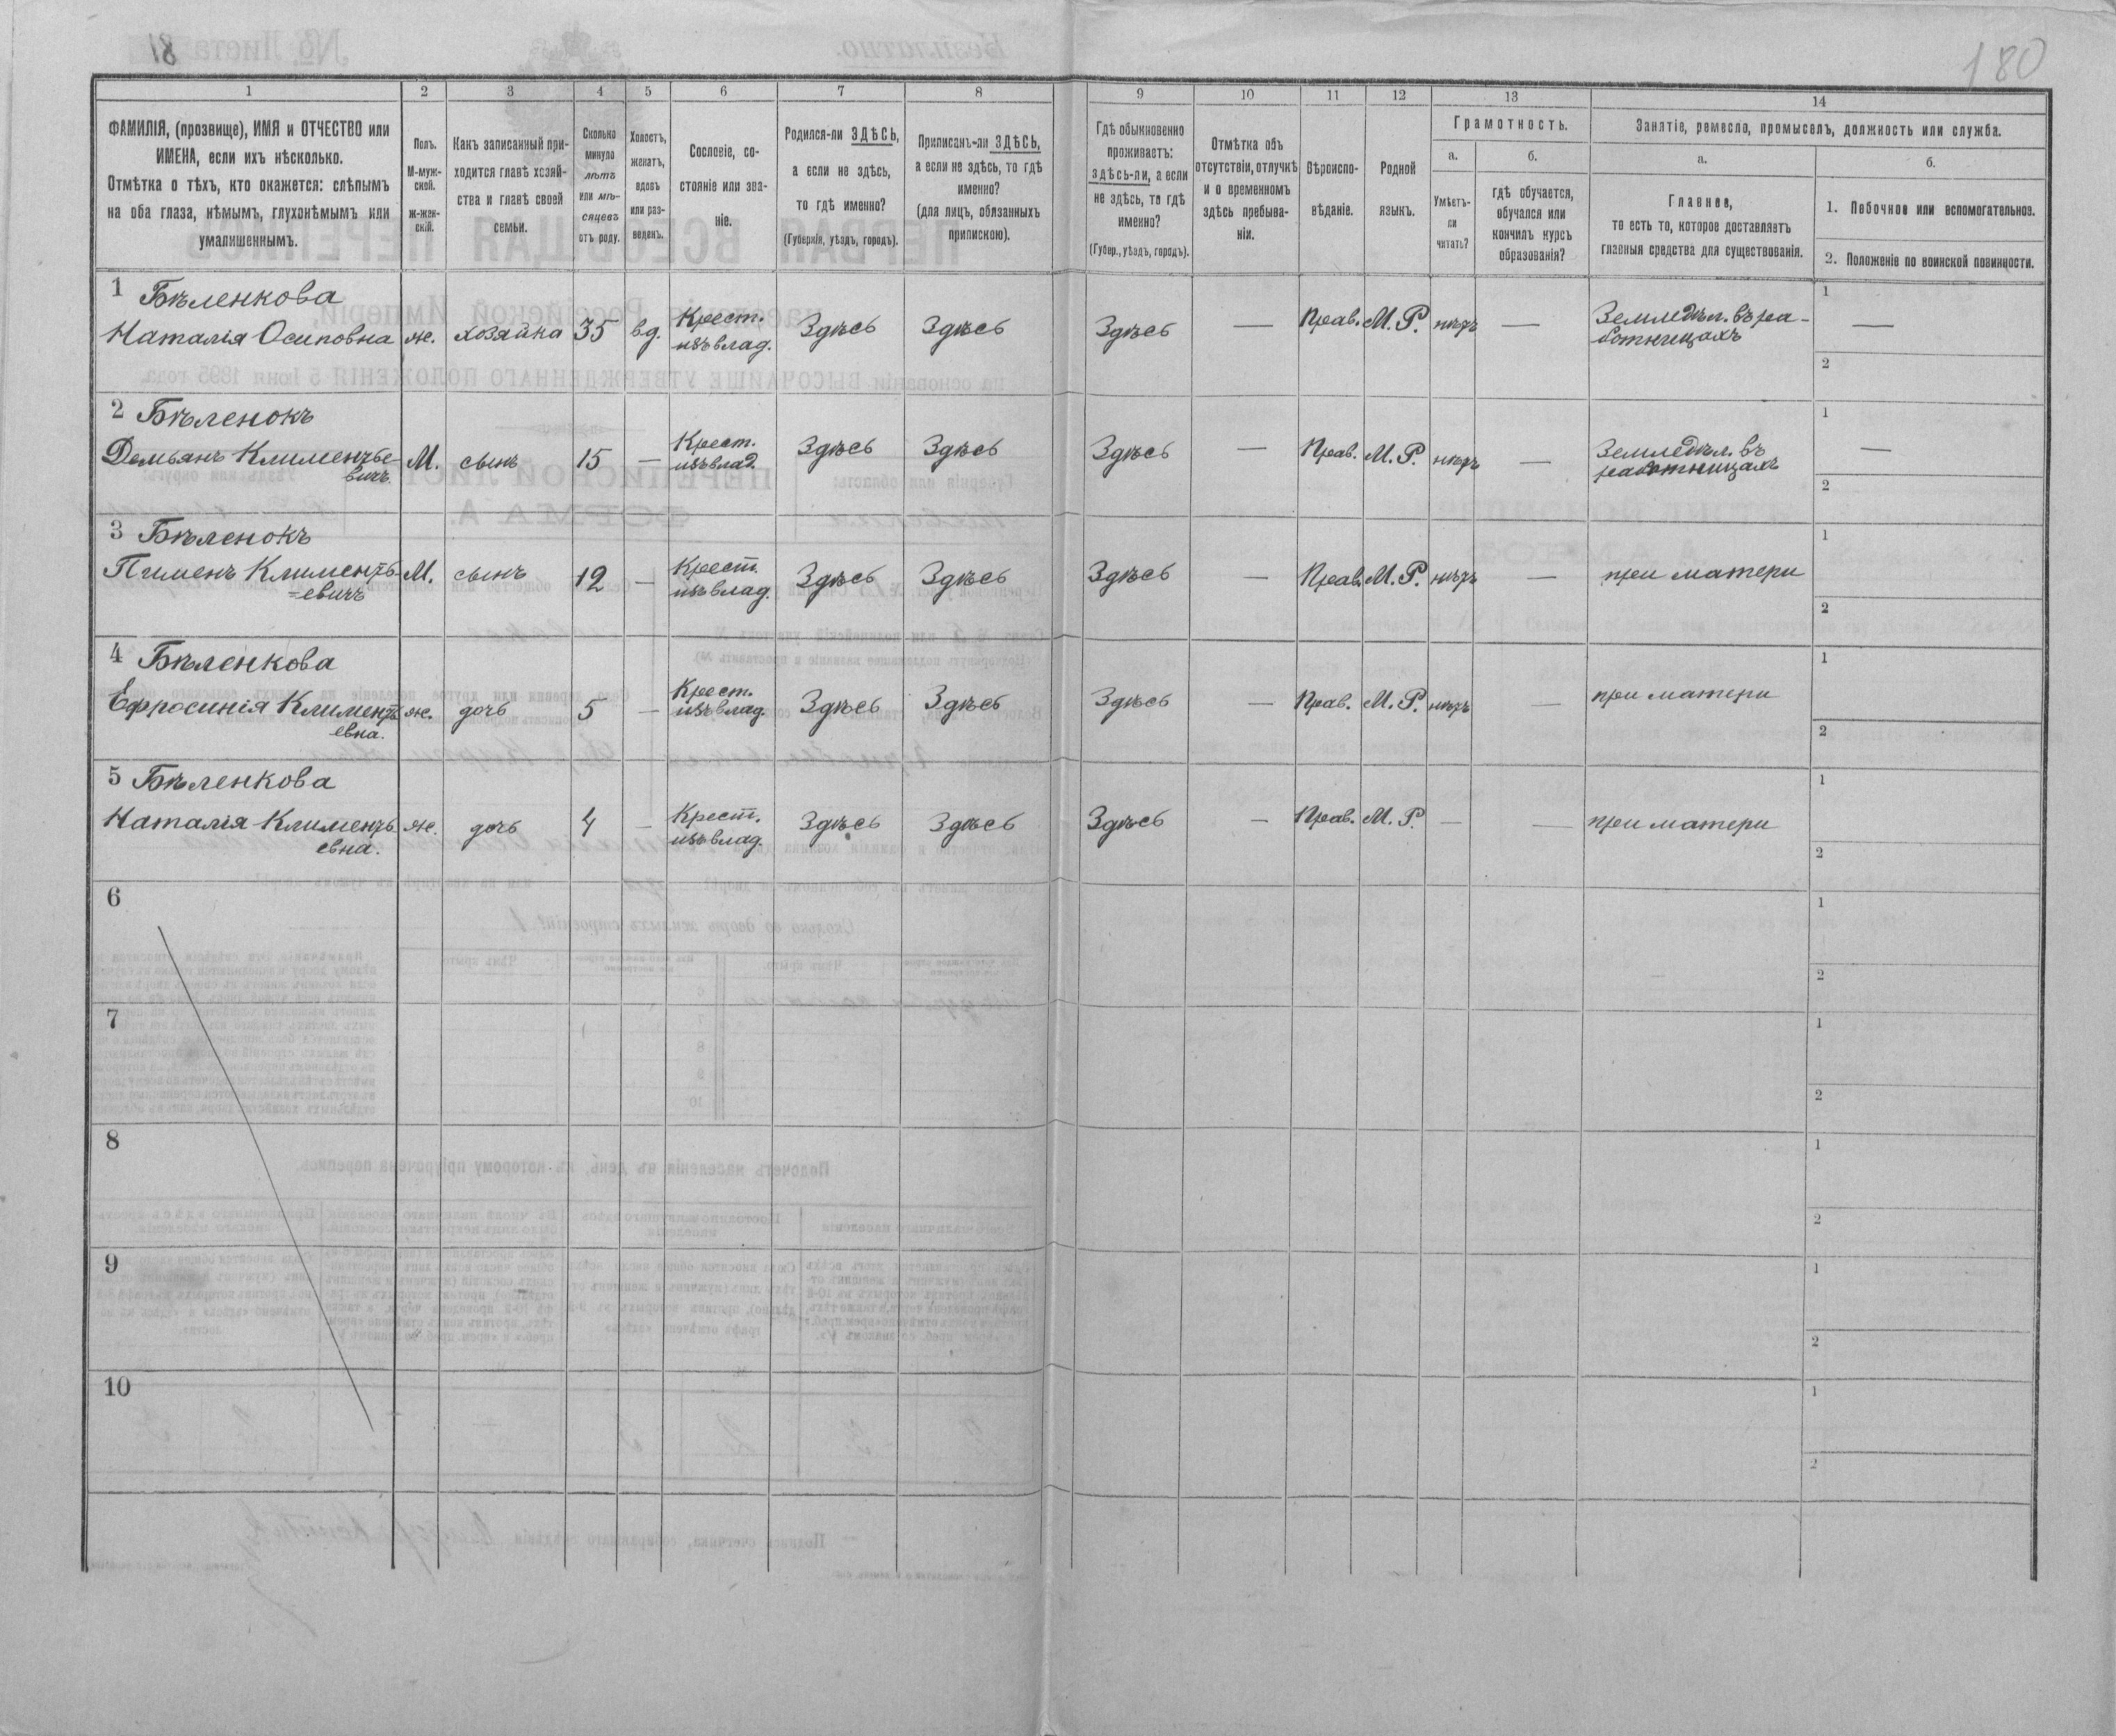 180
1 2 3 4 5 6 7 8 9 10 11 12 13 14
ФАМИЛІЯ, (прозвище), ИМЯ и ОТЧЕСТВО или
ИМЕНА, если ихъ нѣсколько.
Отмѣтка о тѣхъ, кто окажется: слѣпымъ
на оба глаза, нѣмымъ, глухонѣмымъ или
умалишеннымъ.
Полъ.
М-муж-
ской.
ж-жен-
скій.
Какъ записанный при-
ходится главѣ хозяй-
ства и главѣ своей
семьи.
Сколько
минуло
лѣтъ
или мѣ-
сяцевъ
отъ роду.
Холостъ,
женатъ,
вдовъ
или раз-
веденъ.
Сословіе, со-
стояніе или зва-
ніе.
Родился-ли ЗДѢСЬ,
а если не здѣсь,
то гдѣ именно?
(Губернія, уѣздъ, городъ).
Приписанъ-ли ЗДѢСЬ,
а если не здѣсь, то гдѣ
именно?
(для лицъ, обязанныхъ
припискою).
Гдѣ обыкновенно
проживаетъ:
здѣсь-ли, а если
не здѣсь, то гдѣ
именно?
(Губер., уѣздъ, городъ).
Отмѣтка объ
отсутствіи, отлучкѣ
и о временномъ
здѣсь пребыва-
ніи.
Вѣроиспо-
вѣданіе.
Родной
языкъ.
Грамотность.
а.
Умѣетъ-
ли
читать?
б.
гдѣ обучается,
обучался или
кончилъ курсъ
образованія?
Занятіе, ремесло, промыселъ, должность или служба.
а.
Главное,
то есть то, которое доставляетъ
главныя средства для существованія.
б.
1. Побочное или вспомогательное.
2. Положеніе по воинской повинности.
1 Бѣленкова
Наталія Осиповна ж. хозяйка 35 вд. Крест. изъ влад. Здѣсь Здѣсь Здѣсь — Прав. М. Р. нѣтъ — Земледѣл. въ ра-
ботницахъ
1 —
2
2 Бѣленокъ
Демьянъ Клименьтье-
вичъ М. сынъ 15 — Крест. изъ влад. Здѣсь Здѣсь Здѣсь — Прав. М. Р. нѣтъ — Земледѣл. въ
работницахъ
1 —
2
3 Бѣленокъ
Пименъ Климентъ-
=евичъ М. сынъ 12 — Крест. изъ влад. Здѣсь Здѣсь Здѣсь — Прав. М. Р. нѣтъ — при матери
1
2
4 Бѣленкова
Ефросинія Климентъ
евна. ж. дочь 5 — Крест. изъ влад. Здѣсь Здѣсь Здѣсь — Прав. М. Р. нѣтъ — при матери
1
2
5 Бѣленкова
Наталія Климентъ
евна. ж. дочь 4 — Крест. изъ влад. Здѣсь Здѣсь Здѣсь — Прав. М. Р. — — при матери
1
2
6
1
2
7
1
2
8
1
2
9
1
2
10
1
2